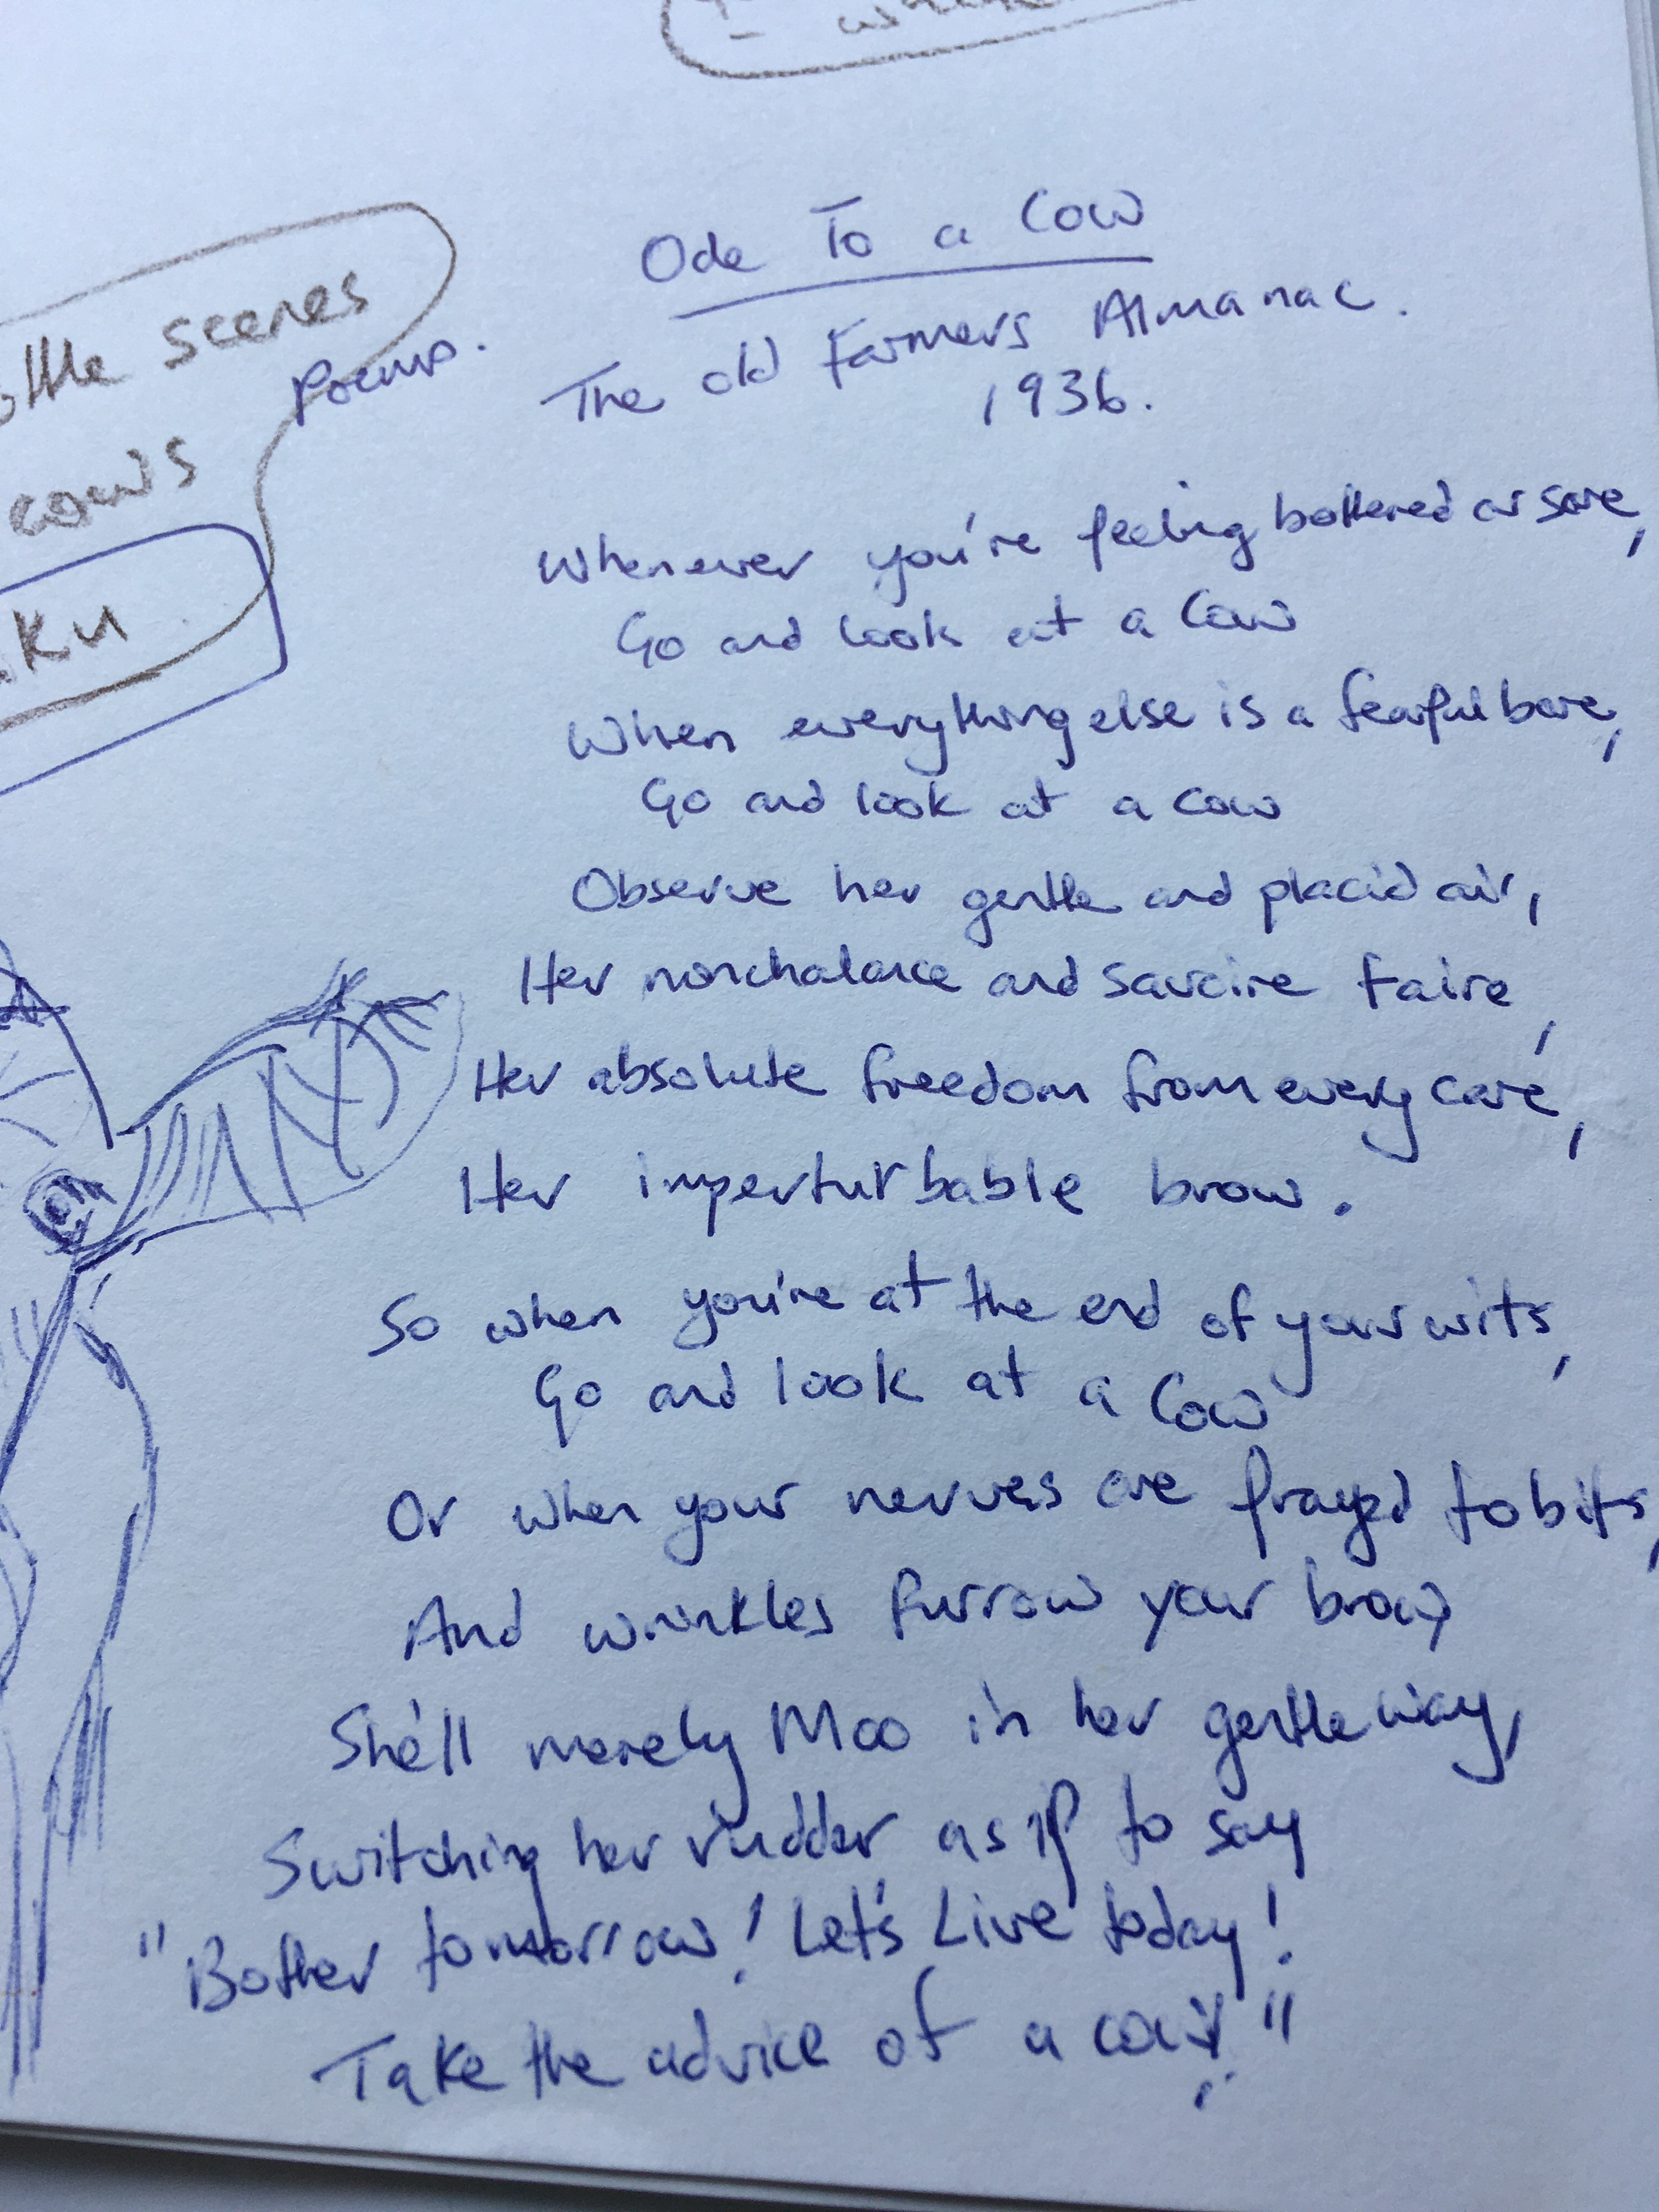 Ode To a Cow
The Old Farmers Almanac.
1936.
scenes
Poems.
cows
Whenever you're feeling bothered or sore,
Go and look at a Cow
When everything else is a fearful bore,
Go and look at a cow
Observe her gentle and placid air,
Her nonchalance and savoire faire,
Her absolute freedom from every care,
Her imperturbable brow.
So when you're at the end of your wits,
Go and look at a Cow
Or when your nerves are frayed to bits,
And wrinkles furrow your brow,
She'll merely Moo in her gentle way,
Switching her rudder as if to say
"Bother tomorrow! Let's Live today!
Take the advice of a cow!"